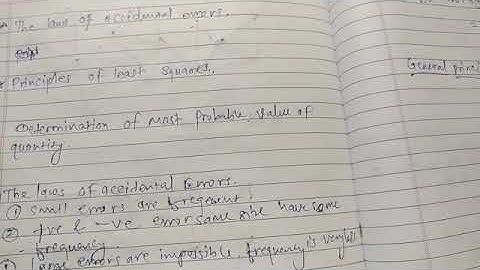 The laws of accidental errors.
Principles of least squares.
General princi
Determination of most probable value of
quantity.
The laws of accidental Errors.
① small errors are frequent!
② +ve & -ve error same size have same
frequency.
errors are impossible, frequency is very